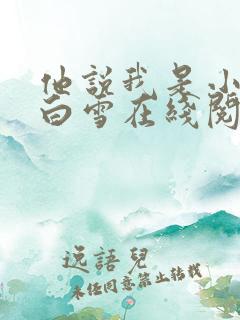 他說我是小
白雪在綫閱
逸語兒
未经同意禁止转载